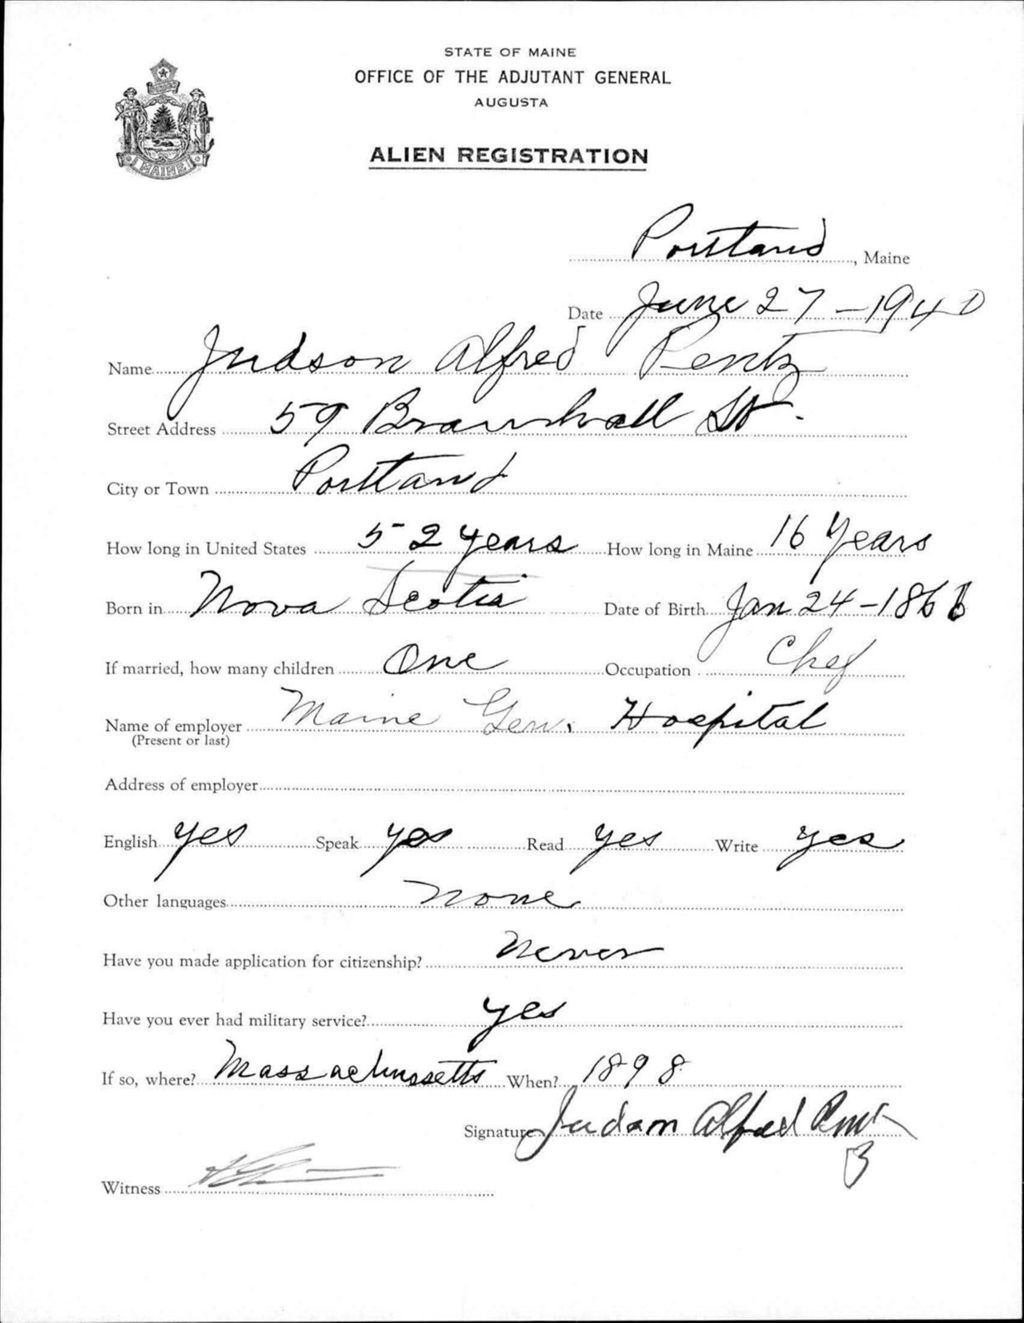 STATE OF MAINE
OFFICE OF THE ADJUTANT GENERAL
AUGUSTA
ALIEN REGISTRATION
MAINE
Portland, Maine
Date June 27-1940
Name Judson Alfred Pentz
Street Address 59 Bramhall St.
City or Town Portland
How long in United States 52 years How long in Maine 16 Years
Born in Nova Scotia Date of Birth Jan 24-1866
If married, how many children One Occupation Chef
Name of employer Maine Gen. Hospital
(Present or last)
Address of employer
English yes Speak yes Read yes Write yes
Other languages none
Have you made application for citizenship? Never
Have you ever had military service? yes
If so, where? Massachussetts When? 1898
Signature Judson Alfred Pentz
Witness